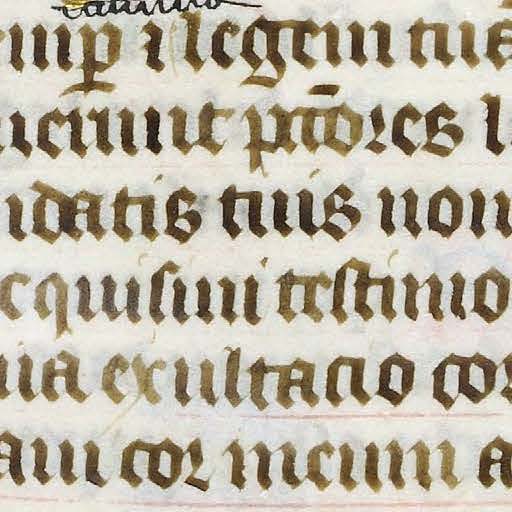 emp̲ i legem tuā
uerunt p̄tōres l
ndatis tuis non
cquisiui testimo
uia exultatio cor
aui cor meum a